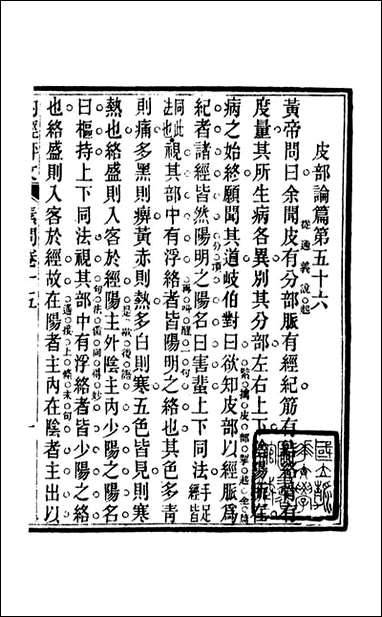 皮部論篇第五十六
從通義說起
黃帝問曰余聞皮有分部脈有經紀筋有結絡骨有
度量其所生病各異別其分部左右上下陰陽所在
緊擒皮部
病之始終願聞其道岐伯對曰欲知皮部以經脈為
分頂
紀者諸經皆然陽明之陽名曰害蜚上下同法手足經皆
同此法也視其部中有浮絡者皆陽明之絡也其色多青
再叫醒一句
則痛多黑則痹黃赤則熱多白則寒五色皆見則寒
熱也絡盛則入客於經陽主外陰主內少陽之陽名
曰樞持上下同法視其部中有浮絡者皆少陽之絡
也絡盛則入客於經故在陽者主內在陰者主出以
內經評文 素問卷十五